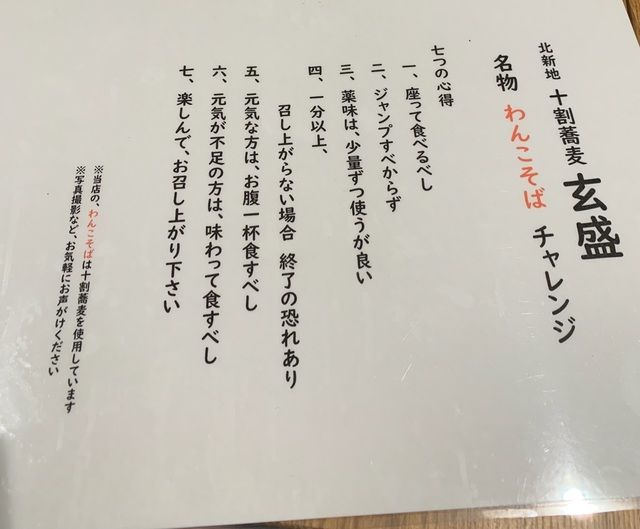 北新地 十割蕎麦 玄盛
名物 わんこそば チャレンジ
七つの心得
一、座って食べるべし
二、ジャンプすべからず
三、薬味は、少量ずつ使うが良い
四、一分以上、
召し上がらない場合 終了の恐れあり
五、元気な方は、お腹一杯食すべし
六、元気が不足の方は、味わって食すべし
七、楽しんで、お召し上がり下さい
※当店の、わんこそばは十割蕎麦を使用しています
※写真撮影など、お気軽にお声がけください